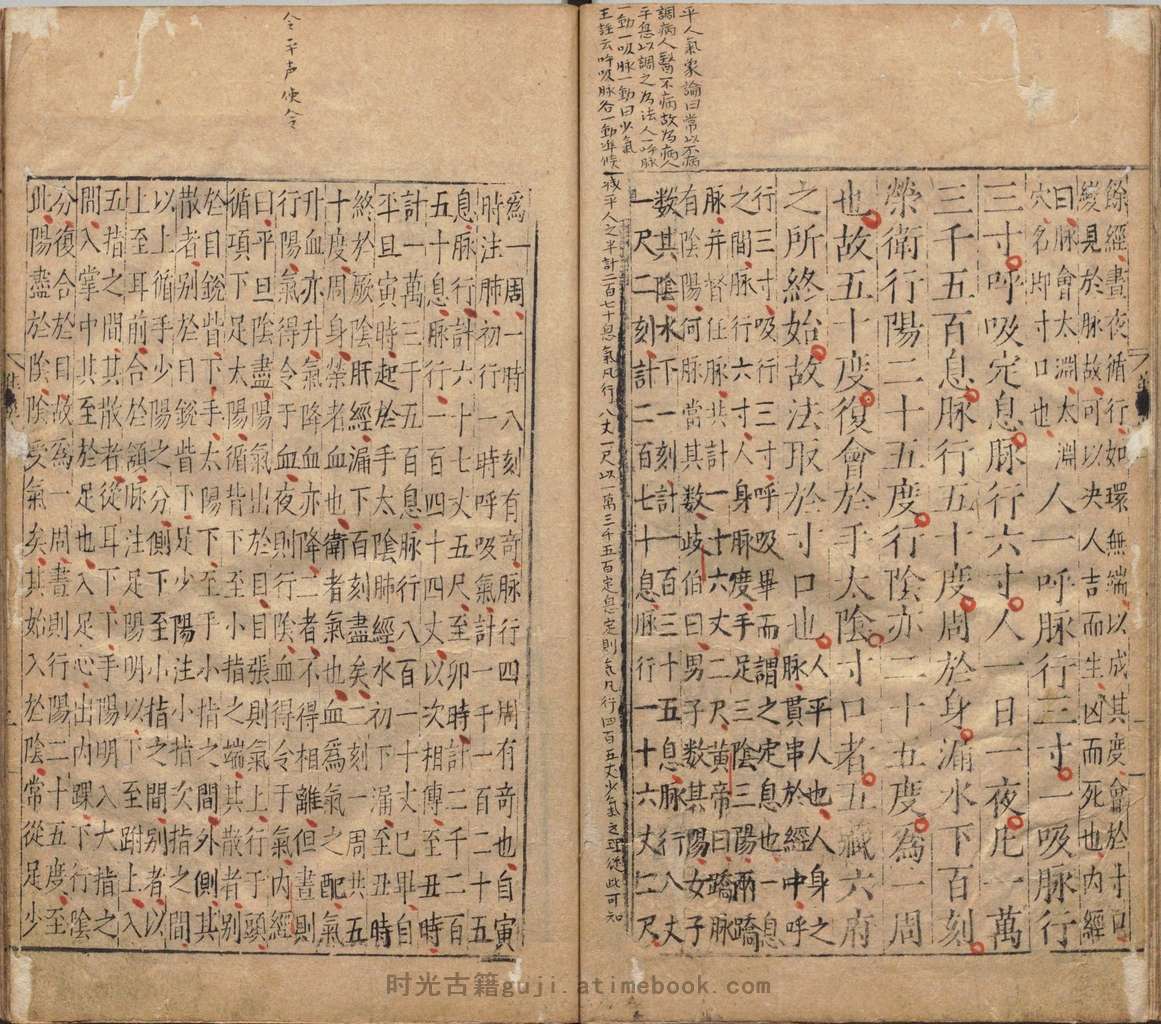 平人氣象論曰常以不病
調病人醫不病故為病人
平息以調之為法人一呼脉
一動一吸脉一動曰少氣
王註云呼吸脉各一動準候
減平人之半計二百七十息氣凡行八丈一尺以一萬三千五百定息定則氣凡行四百五丈少氣之理從此可知
餘經晝夜循行如環無端以成其度會於寸口
變見於脉故可以决人吉而生凶而死也内經
曰脉會太淵太淵
穴名即寸口也
人一呼脉行三寸一吸脉行
三寸呼吸定息脉行六寸人一日一夜凡一萬
三千五百息脉行五十度周於身漏水下百刻
榮衛行陽二十五度行陰亦二十五度為一周
也故五十度復會於手太陰寸口者五藏六府
之所終始故法取於寸口也
人平人也人身之
脉貫串於經中呼
行三寸吸行三寸呼吸畢而謂之定息也一息
之間脉行六寸人身脉度手足三陰三陽兩蹻
脉并督任脉共計一十六丈二尺黃帝曰蹻脉
有陰陽何脉當其数歧伯曰男子数其陽女子
数其陰水下一刻計一百三十五息脉行八丈
一尺二刻計二百七十息脉行一十六丈二尺
令平声使令
為一周一時八刻有奇脉行四周有奇也自寅
時注肺初行一時呼吸氣計一千一百二十五
息脉行計六十七丈五尺至卯時計二千二百
五十息脉行一百四十四丈以次相傳至丑時
計一萬三千五百息脉行八百一十丈已畢自
平旦寅時起於手太陰肺經水初下漏至丑時
終於厥陰肝經漏下百刻盡矣二刻一周共五
十度周身榮者血也衛者氣也血為氣之配氣
升血亦升氣降血亦降二者不得相離但晝則
行陽氣得令于血夜則行陰血得令于氣内經
曰平旦陰盡陽氣出於目目張則氣上行于頭
循項下足太陽循背下至小指之端其散者別
於目銳眥下手太陽下至手小指之間外側其
散者別於目銳眥下足少陽注小指次指之間
以上循手少陽之分側下至小指之間別者以
上至耳前合於頷脉注足陽明以下至跗上入
五指之間其散者從耳下下手陽明入大指之
間入掌中其至於足也入足心出内踝下行陰
分復合於目故為一周晝則行陽二十五度至
此陽盡於陰陰受氣矣其始入於陰常從足少
时光古籍guji.atimebook.com